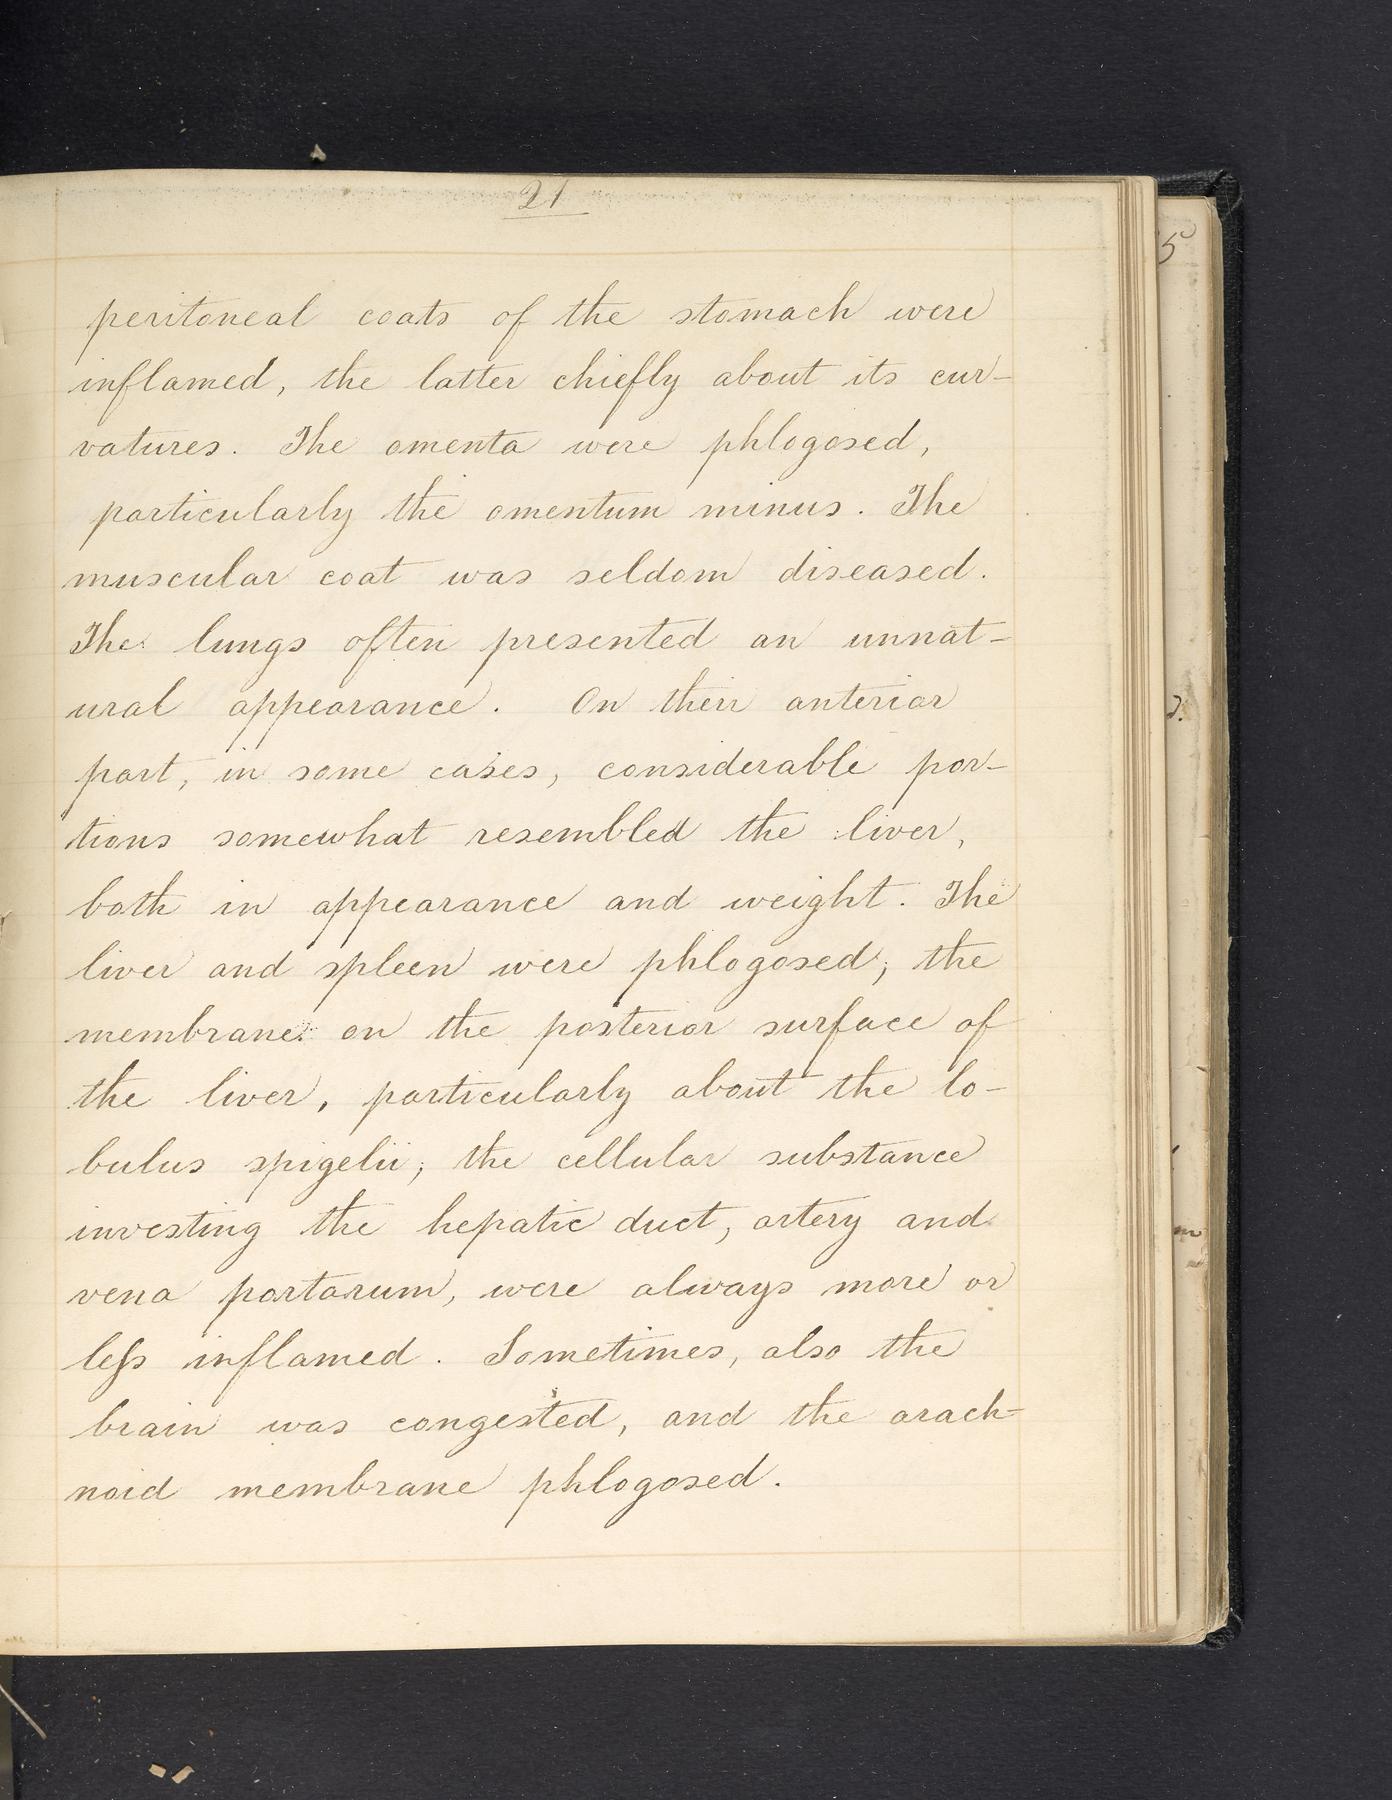 21
peritoneal coats of the stomach were
inflamed, the latter chiefly about its cur-
vatures. The omenta were phlogosed,
particularly the omentum minus. The
muscular coat was seldom diseased.
The lungs often presented an unnat-
ural appearance. On their anterior
part, in some cases, considerable por-
tions somewhat resembled the liver,
both in appearance and weight. The
liver and spleen were phlogosed; the
membrane on the posterior surface of
the liver, particularly about the lo-
bulus spigelii; the cellular substance
investing the hepatic duct, artery and
vena portarum, were always more or
less inflamed. Sometimes, also the
brain was congested, and the arach-
noid membrane phlogosed.
5